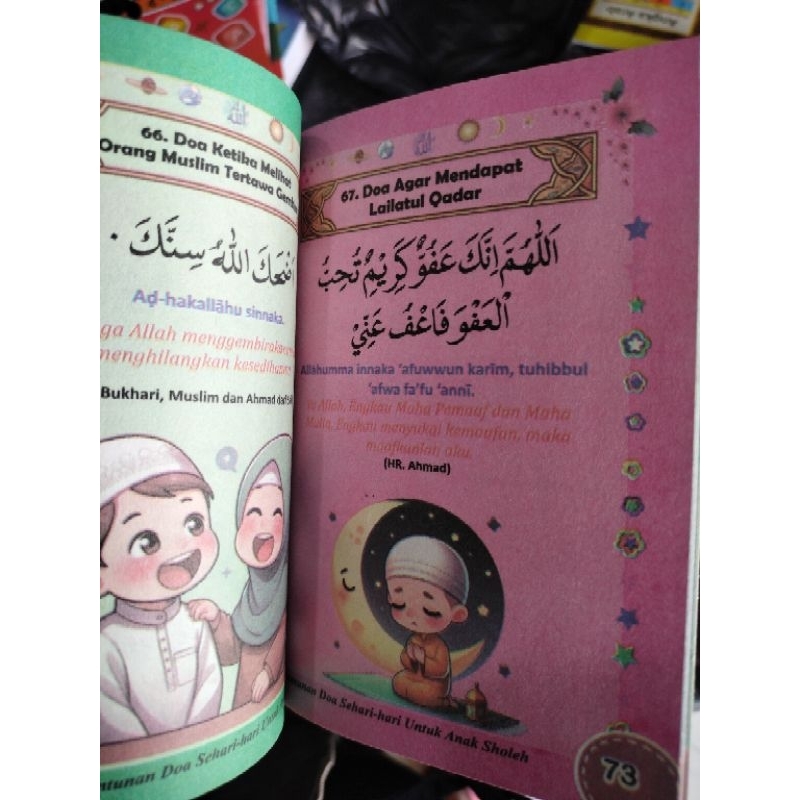 66. Doa Ketika Melihat
Orang Muslim Tertawa
اللّٰهُ سِنَّكَ
Aḍ-hakallāhu sinnaka.
Allah
menghilangkan
Bukhari, Muslim dan Ahmad
67. Doa Agar Mendapat
Lailatul Qadar
اَللّٰهُمَّ اِنَّكَ عَفُوٌّ كَرِيْمٌ تُحِبُّ
الْعَفْوَ فَاعْفُ عَنِّيْ
Allāhumma innaka ‘afuwwun karīm, tuhibbul
‘afwa fa’fu ‘annī.
Ya Allah, Engkau Maha Pemaaf dan Maha
Mulia, Engkau menyukai kemaafan, maka
maafkanlah aku.
(HR. Ahmad)
Doa Sehari-hari
Doa Sehari-hari Untuk Anak Sholeh
73